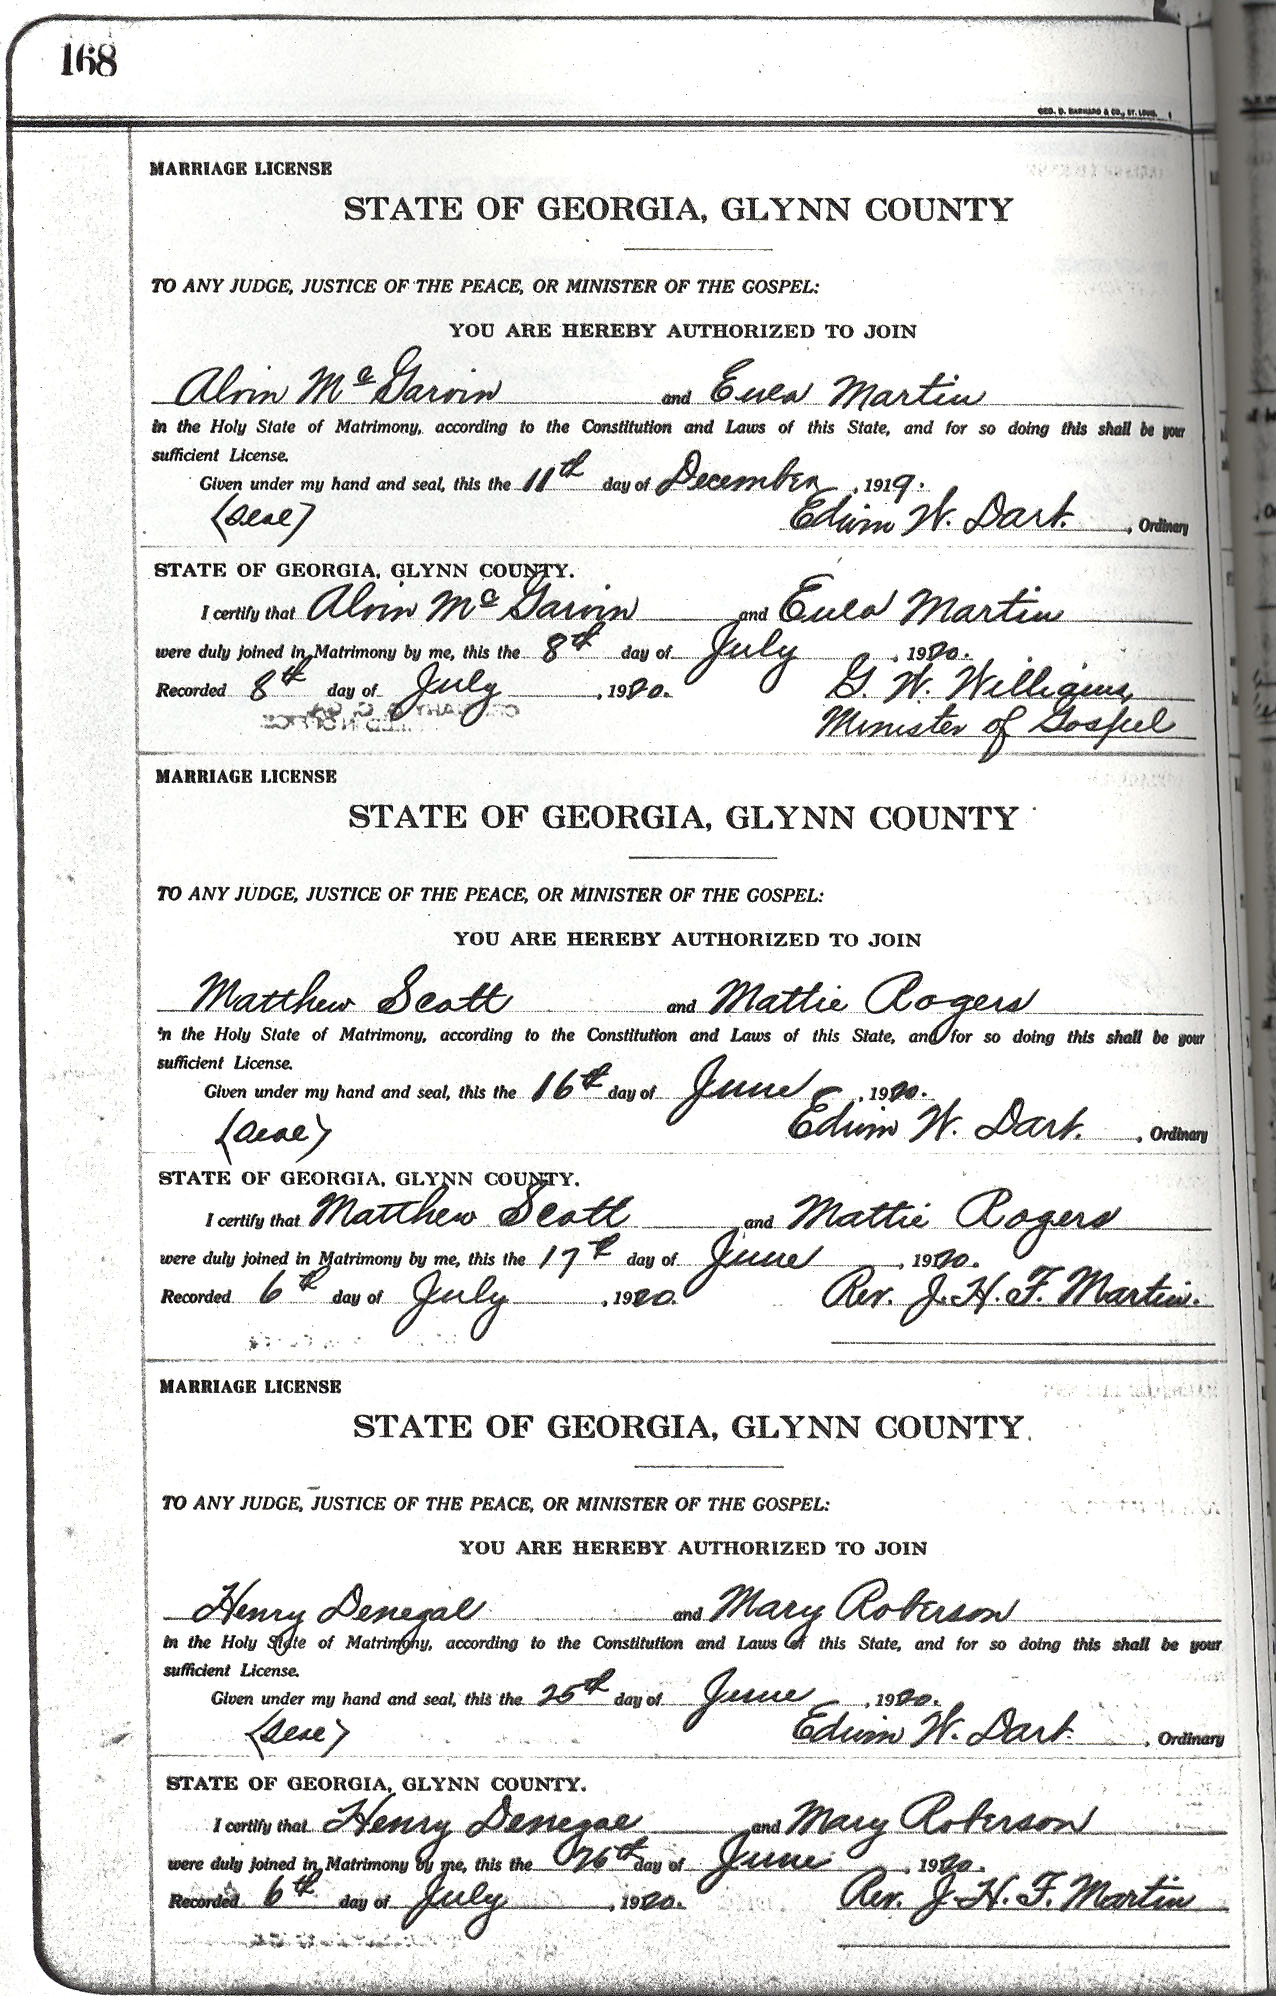 168
GEO. D. BARNARD & CO., ST. LOUIS.
MARRIAGE LICENSE
STATE OF GEORGIA, GLYNN COUNTY
TO ANY JUDGE, JUSTICE OF THE PEACE, OR MINISTER OF THE GOSPEL:
YOU ARE HEREBY AUTHORIZED TO JOIN
Alvin McGarvin and Eula Martin
in the Holy State of Matrimony, according to the Constitution and Laws of this State, and for so doing this shall be your
sufficient License.
Given under my hand and seal, this the 11th day of December, 1919.
(Seal) Edwin W. Dart. , Ordinary
STATE OF GEORGIA, GLYNN COUNTY.
I certify that Alvin McGarvin and Eula Martin
were duly joined in Matrimony by me, this the 8th day of July, 1920.
Recorded 8th day of July, 1920. G. W. Williams,
Minister of Gospel
MARRIAGE LICENSE
STATE OF GEORGIA, GLYNN COUNTY
TO ANY JUDGE, JUSTICE OF THE PEACE, OR MINISTER OF THE GOSPEL:
YOU ARE HEREBY AUTHORIZED TO JOIN
Matthew Scott and Mattie Rogers
in the Holy State of Matrimony, according to the Constitution and Laws of this State, and for so doing this shall be your
sufficient License.
Given under my hand and seal, this the 16th day of June, 1920.
(Seal) Edwin W. Dart. , Ordinary
STATE OF GEORGIA, GLYNN COUNTY.
I certify that Matthew Scott and Mattie Rogers
were duly joined in Matrimony by me, this the 17th day of June, 1920.
Recorded 6th day of July, 1920. Rev. J. H. F. Martin.
MARRIAGE LICENSE
STATE OF GEORGIA, GLYNN COUNTY
TO ANY JUDGE, JUSTICE OF THE PEACE, OR MINISTER OF THE GOSPEL:
YOU ARE HEREBY AUTHORIZED TO JOIN
Henry Denegal and Mary Roberson
in the Holy State of Matrimony, according to the Constitution and Laws of this State, and for so doing this shall be your
sufficient License.
Given under my hand and seal, this the 25th day of June, 1920.
(Seal) Edwin W. Dart. , Ordinary
STATE OF GEORGIA, GLYNN COUNTY.
I certify that Henry Denegal and Mary Roberson
were duly joined in Matrimony by me, this the 26th day of June, 1920.
Recorded 6th day of July, 1920. Rev. J. H. F. Martin